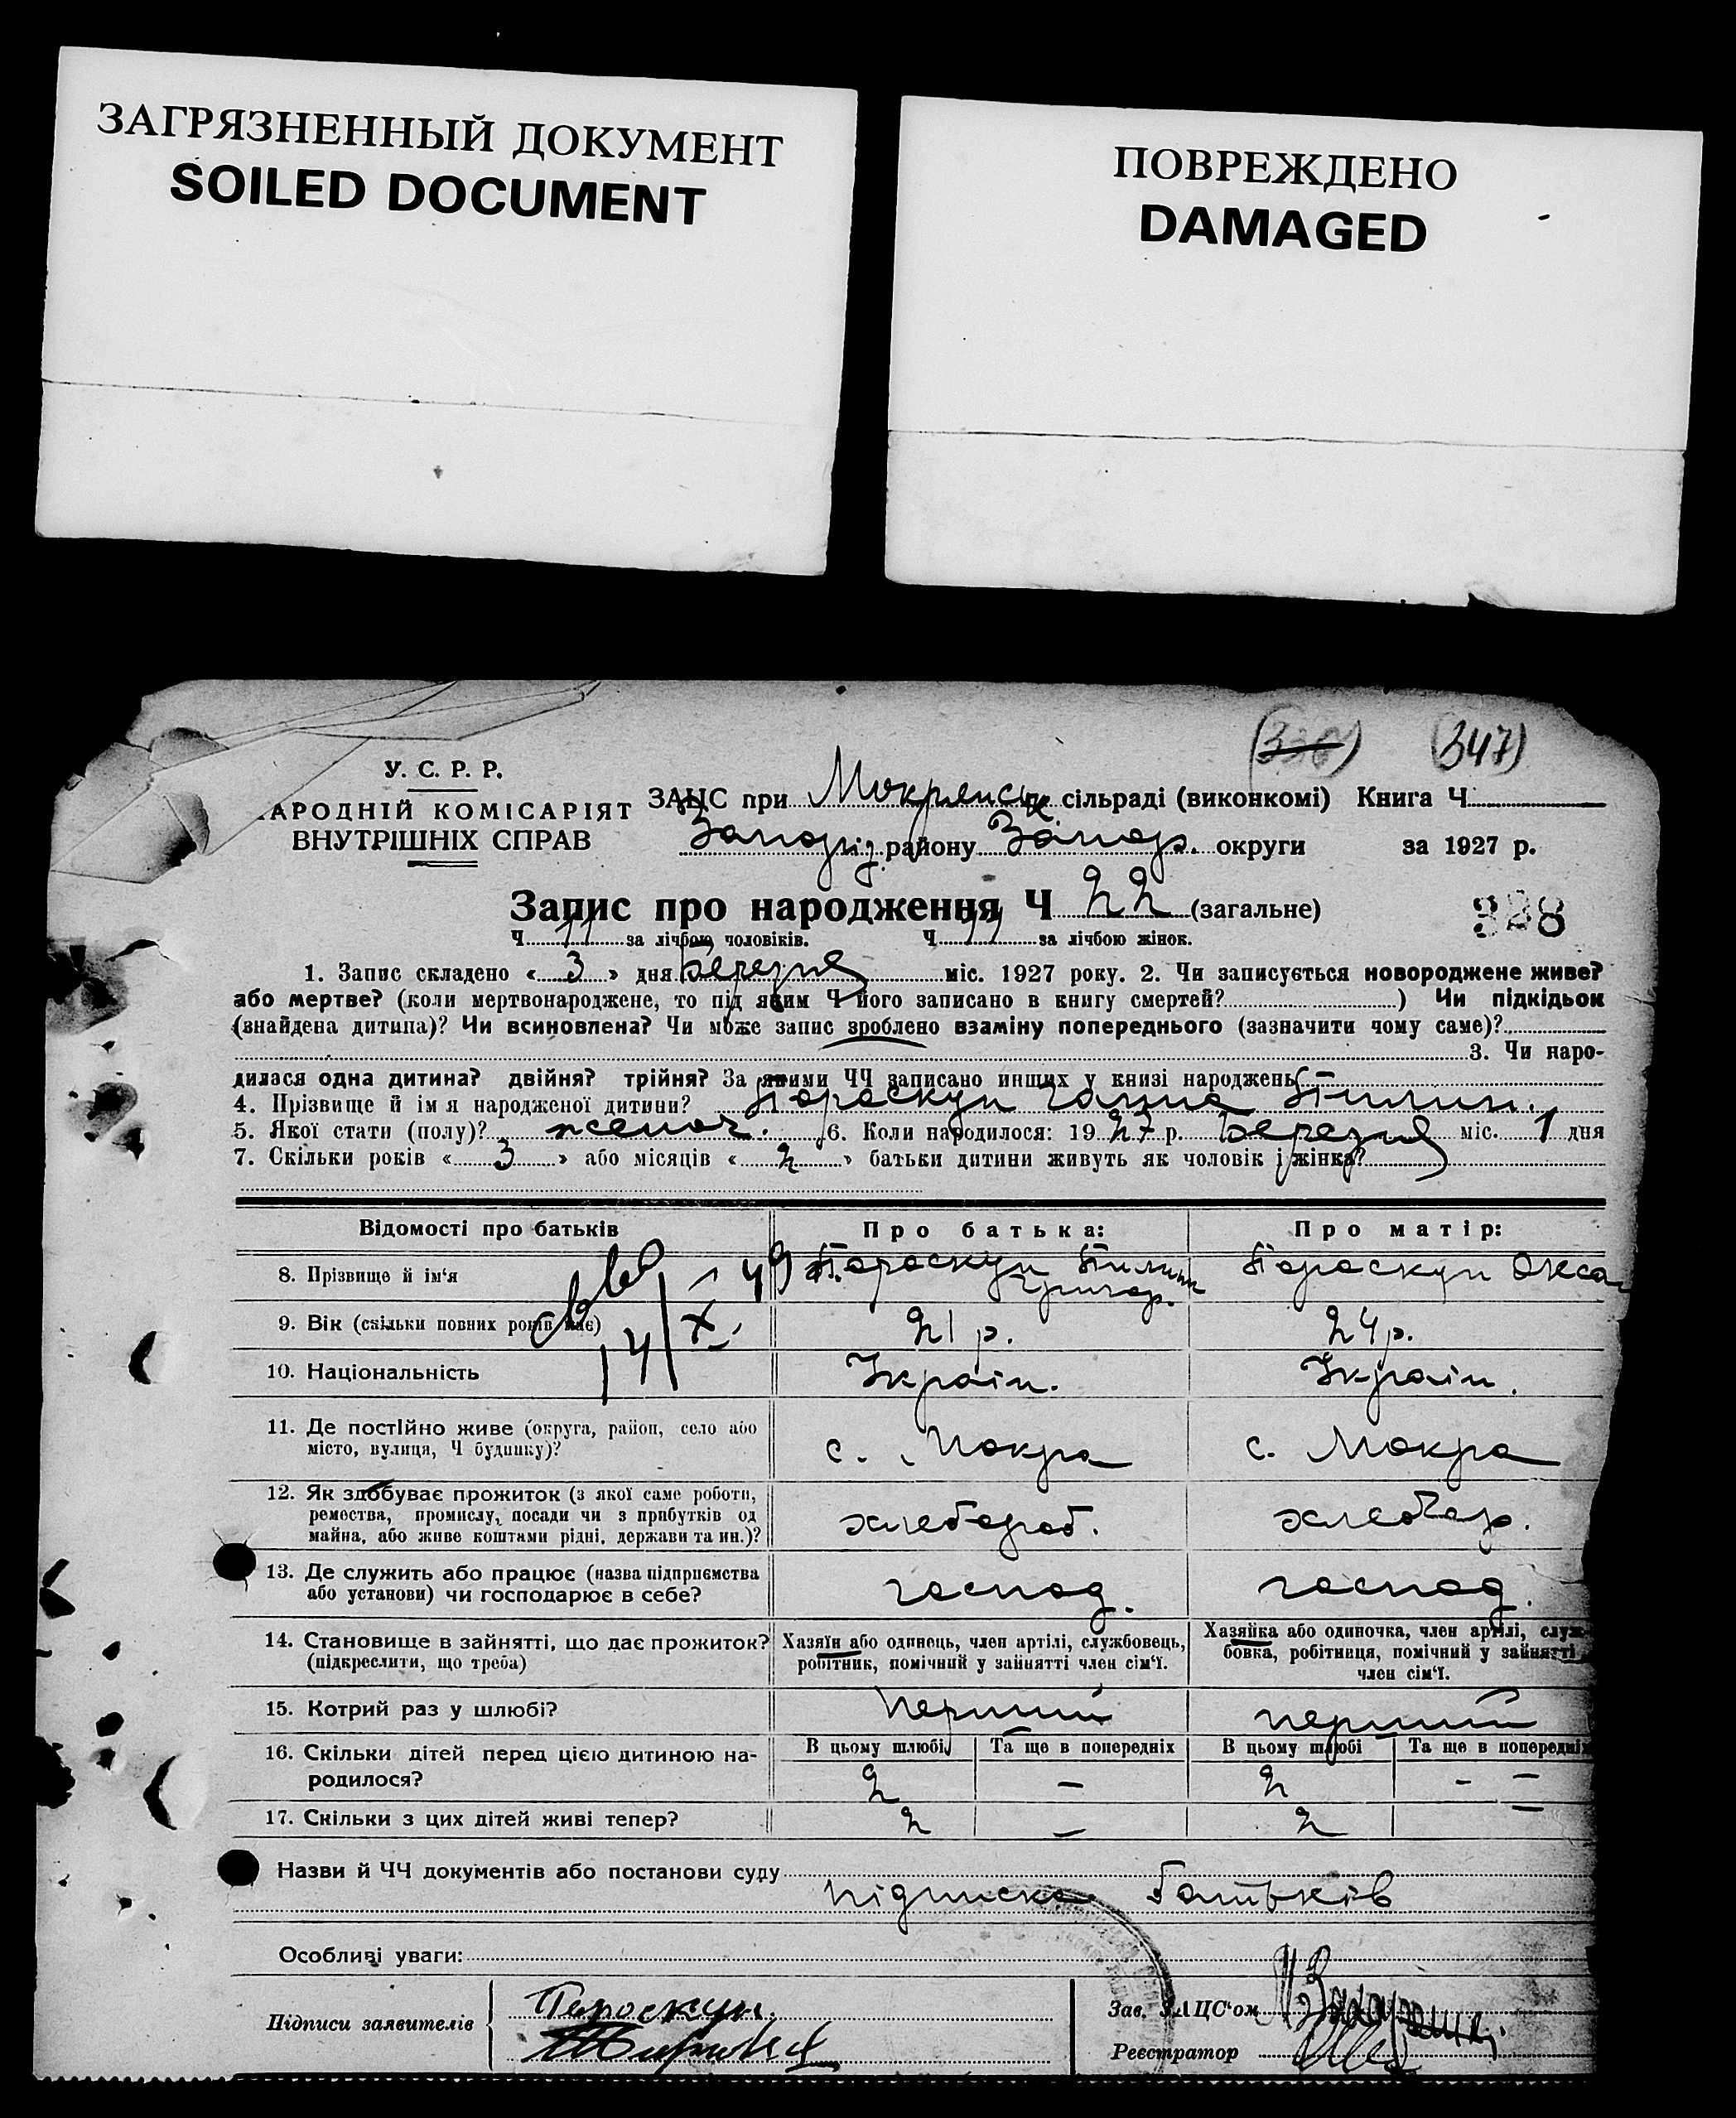 ЗАГРЯЗНЕННЫЙ ДОКУМЕНТ
SOILED DOCUMENT
ПОВРЕЖДЕНО
DAMAGED
(347)
У. С. Р. Р.
АРОДНІЙ КОМІСАРІЯТ
ВНУТРІШНІХ СПРАВ
ЗАЦС при Мокрянськ сільраді (виконкомі) Книга Ч
Запоріз. району Запор. округи за 1927 р.
Запис про народження Ч 22 (загальне)
328
Ч 11 за лічбою чоловіків. Ч 11 за лічбою жінок.
1. Запис складено « 3 » дня Березня міс. 1927 року. 2. Чи записується новороджене живе?
або мертве? (коли мертвонароджене, то під яким Ч його записано в книгу смертей? ) Чи підкідьок
(знайдена дитина)? Чи всиновлена? Чи може запис зроблено взаміну попереднього (зазначити чому саме)?
3. Чи наро-
дилася одна дитина? двійня? трійня? За якими ЧЧ записано инших у книзі народжень
4. Прізвище й ім'я народженої дитини? Параскун Ганна Пилип.
5. Якої стати (полу)? женоч. 6. Коли народилося: 19 27 р. Березня міс. 1 дня
7. Скільки років « 3 » або місяців « 2 » батьки дитини живуть як чоловік і жінка?
Відомості про батьків Про батька: Про матір:
8. Прізвище й ім'я Параскун Пилип Григор. Параскун Окса
9. Вік (скільки повних років має) 21 р. 24 р.
10. Національність Україн. Україн.
11. Де постійно живе (округа, район, село або
місто, вулиця, Ч будинку)? с. Мокра с. Мокра
12. Як здобуває прожиток (з якої саме роботи,
ремества, промислу, посади чи з прибутків од
майна, або живе коштами рідні, держави та ин.)? хлебороб. хлебор.
13. Де служить або працює (назва підприємства
або установи) чи господарює в себе? господ. господ.
14. Становище в зайнятті, що дає прожиток?
(підкреслити, що треба)
Хазяїн або одинець, член артілі, службовець,
робітник, помічний у зайнятті член сім'ї.
Хазяйка або одиночка, член артілі, служ-
бовка, робітниця, помічний у зайнятті
член сім'ї.
15. Котрий раз у шлюбі? перший перший
16. Скільки дітей перед цією дитиною на-
родилося?
В цьому шлюбі Та ще в попередніх В цьому шлюбі Та ще в попередніх
2 — 2 — —
17. Скільки з цих дітей живі тепер? 2 — 2 —
Назви й ЧЧ документів або постанови суду
підписка батьків
Особливі уваги:
Підписи заявителів Параскун.
Зав. ЗАЦС'ом
Реєстратор